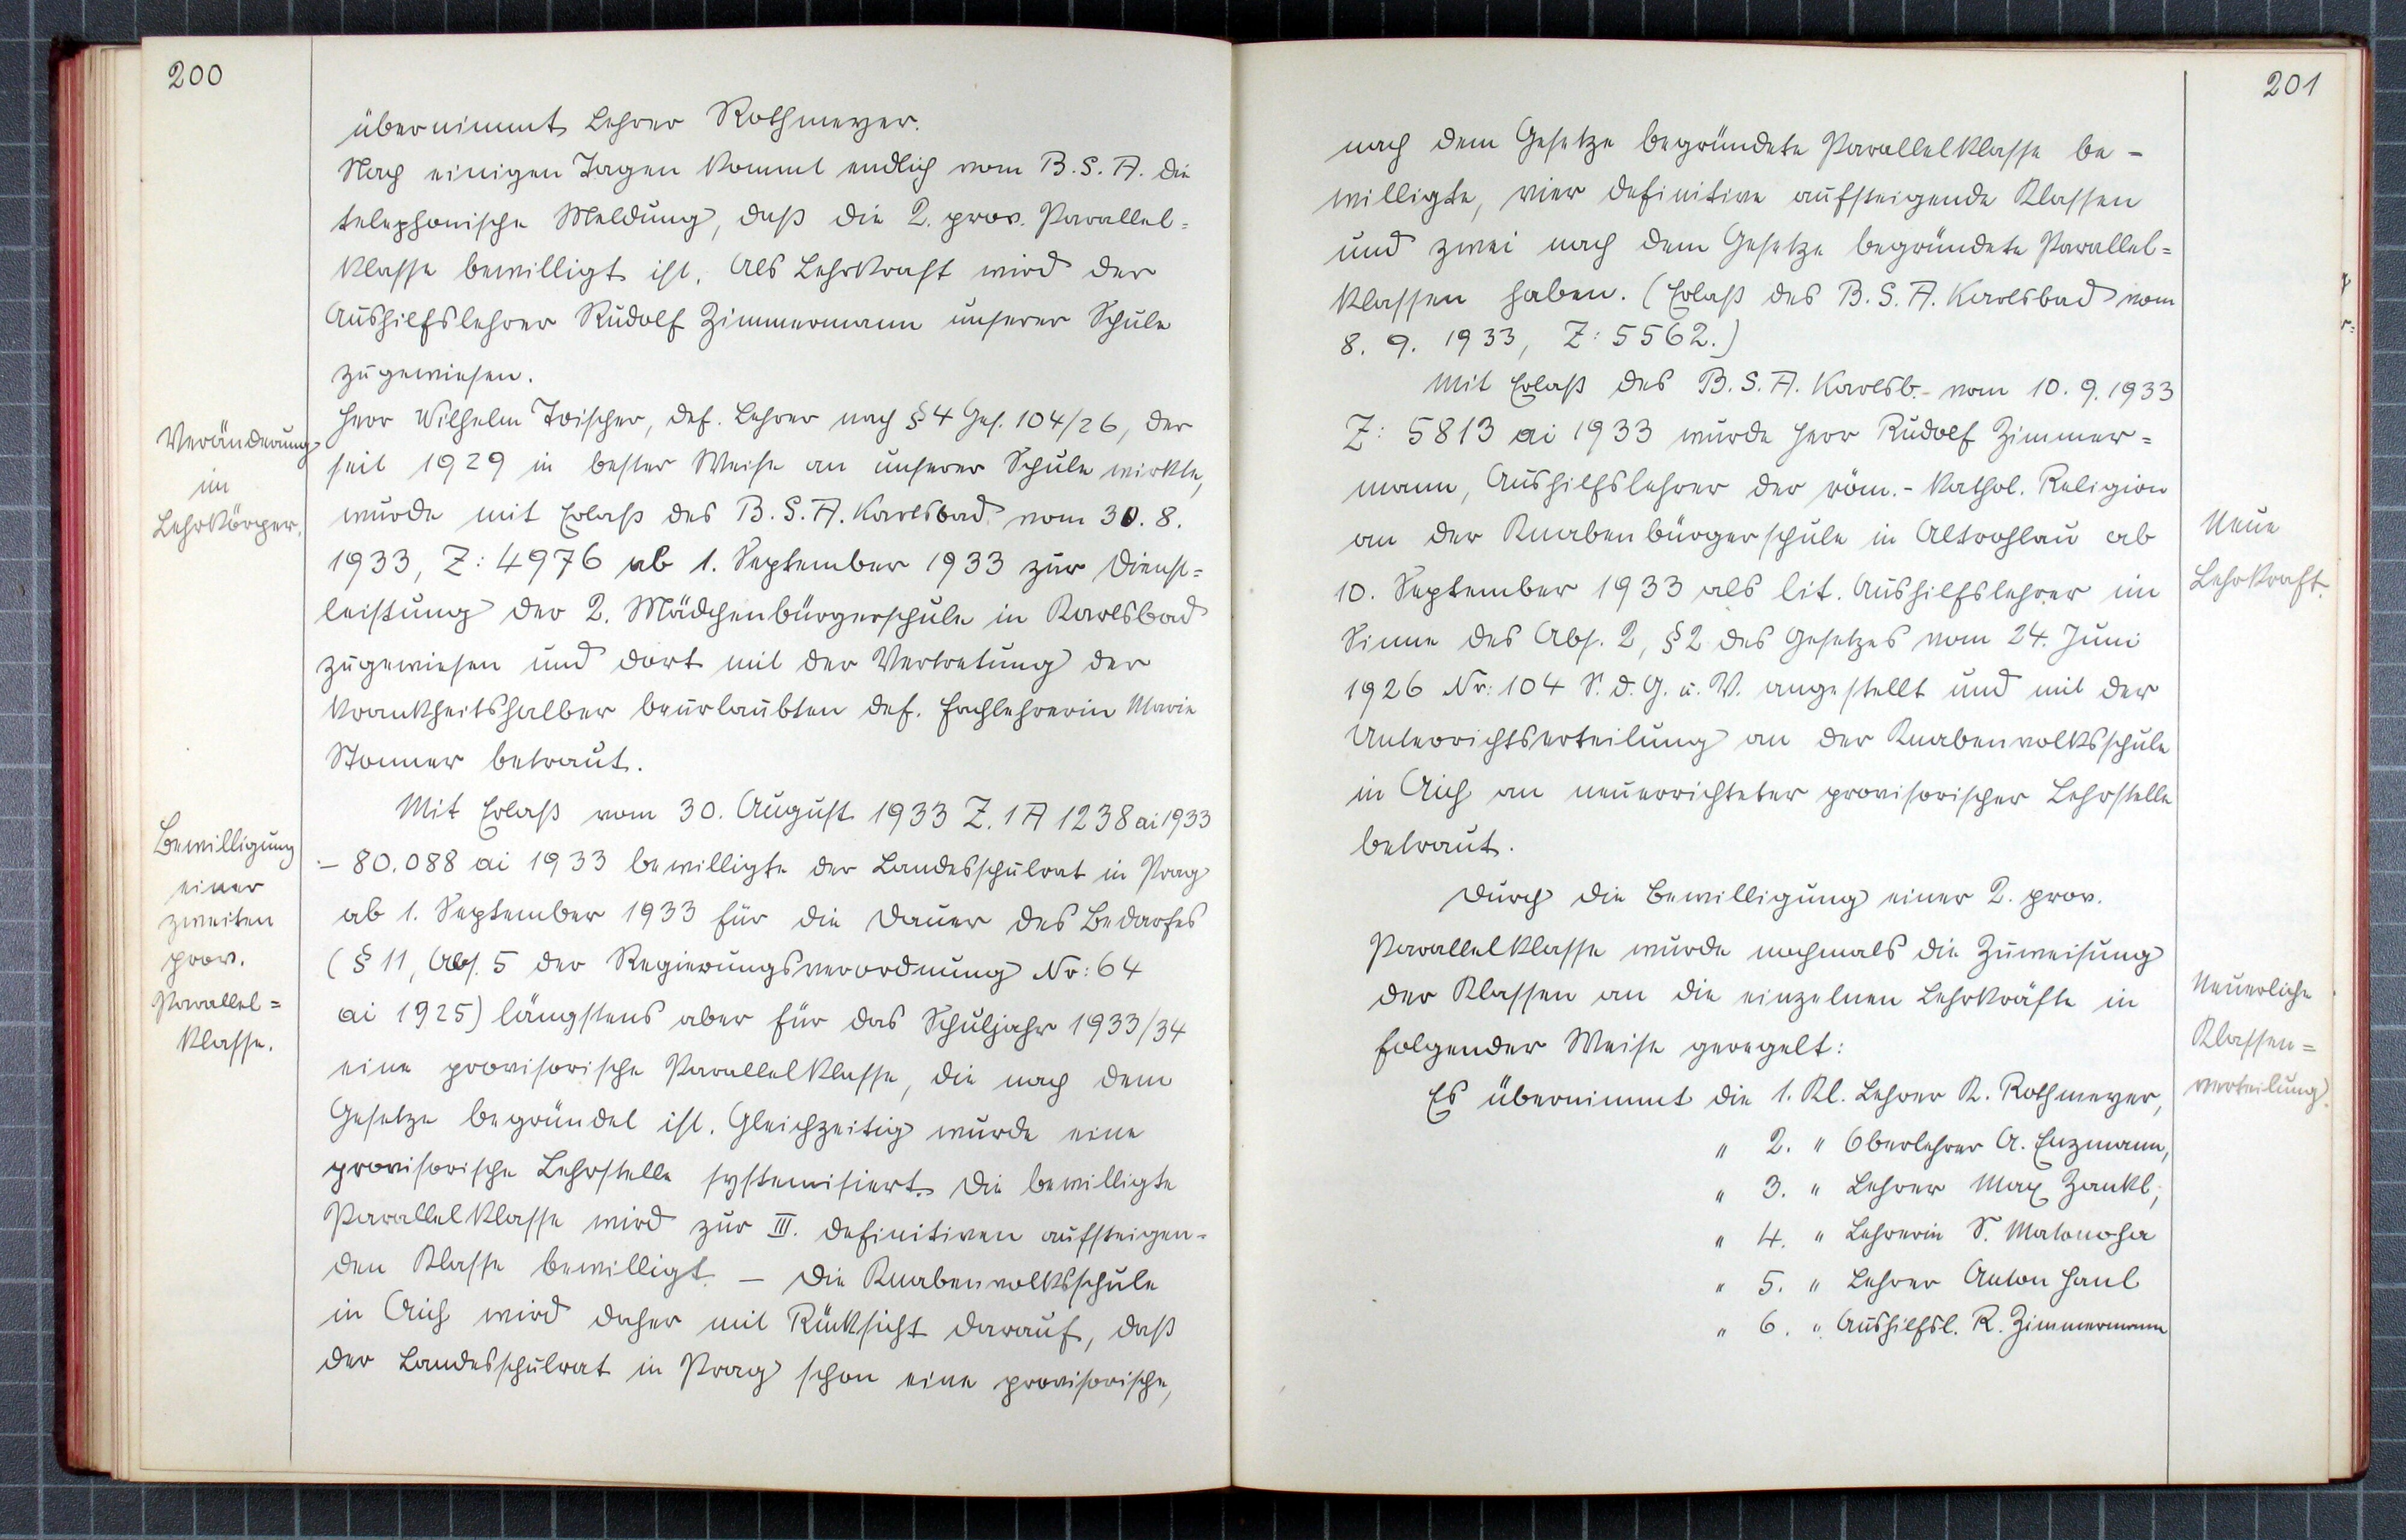 200
übernimmt Lehrer Rothmeyer.
Nach einigen Tagen kommt endlich vom B.S.A. die
telephonische Meldung, daß die 2. prov. Parallel=
klasse bewilligt ist. Als Lehrkraft wird der
Aushilfslehrer Rudolf Zimmermann unserer Schule
zugewiesen.
Veränderung
im
Lehrkörper.
Herr Wilhelm Toischer, def. Lehrer nach § 4 Ges. 104/26, der
seit 1929 in bester Weise an unserer Schule wirkte,
wurde mit Erlaß des B.S.A. Karlsbad vom 30. 8.
1933, Z: 4976 ab 1. September 1933 zur Dienst=
leistung der 2. Mädchenbürgerschule in Karlsbad
zugewiesen und dort mit der Vertretung der
krankheitshalber beurlaubten def. Fachlehrerin Marie
Stonner betraut.
Bewilligung
einer
zweiten
prov.
Parallel=
klasse.
Mit Erlaß vom 30. August 1933 Z. 1 A 1238 ai 1933
– 80.088 ai 1933 bewilligte der Landesschulrat in Prag
ab 1. September 1933 für die Dauer des Bedarfes
(§ 11, Abs. 5 der Regierungsverordnung Nr: 64
ai 1925) längstens aber für das Schuljahr 1933/34
eine provisorische Parallelklasse, die nach dem
Gesetze begründet ist. Gleichzeitig wurde eine
provisorische Lehrstelle systemisiert. Die bewilligte
Parallelklasse wird zur III. definitiven aufsteigen=
den Klasse bewilligt. – Die Knabenvolksschule
in Aich wird daher mit Rücksicht darauf, daß
der Landesschulrat in Prag schon eine provisorische,
201
nach dem Gesetze begründete Parallelklasse be-
willigte, vier definitive aufsteigende Klassen
und zwei nach dem Gesetze begründete Parallel=
klassen haben. (Erlaß des B.S.A. Karlsbad vom
8. 9. 1933, Z: 5562.)
Mit Erlaß des B.S.A. Karlsb. vom 10. 9. 1933
Z: 5813 ai 1933 wurde Herr Rudolf Zimmer=
mann, Aushilfslehrer der röm.-kathol. Religion
an der Knabenbürgerschule in Altrohlau ab
10. September 1933 als lit. Aushilfslehrer im
Sinne des Abs. 2, § 2 des Gesetzes vom 24. Juni
1926 Nr: 104 S. d. G. u. V. angestellt und mit der
Unterrichtserteilung an der Knabenvolksschule
in Aich an neuerrichteter provisorischer Lehrstelle
betraut.
Neue
Lehrkraft.
Durch die Bewilligung einer 2. prov.
Parallelklasse wurde nochmals die Zuweisung
der Klassen an die einzelnen Lehrkräfte in
folgender Weise geregelt:
Neuerliche
Klassen=
verteilung.
Es übernimmt die 1. Kl. Lehrer K. Rothmeyer,
" 2. " Oberlehrer A. Enzmann,
" 3. " Lehrer Max Zankl,
" 4. " Lehrerin S. Matonoha
" 5. " Lehrer Anton Haul
" 6. " Aushilfsl. R. Zimmermann